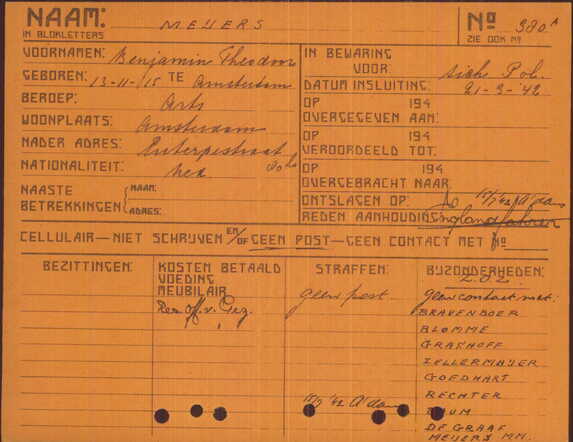 NAAM: MEIJERS
IN BLOKLETTERS
No 380A
ZIE OOK No
VOORNAMEN: Benjamin Theodoor
GEBOREN: 13-11-'15 TE Amsterdam
BEROEP: Arts
WOONPLAATS: Amsterdam
NADER ADRES: Euterpestraat
NATIONALITEIT: Ned
NAASTE BETREKKINGEN
NAAM:
ADRES:
IN BEWARING
VOOR Siche Pol.
DATUM INSLUITING: 21-3-'42
OP 194
OVERGEGEVEN AAN:
OP 194
VEROORDEELD TOT:
OP 194
OVERGEBRACHT NAAR:
ONTSLAGEN OP: A'dam
REDEN AANHOUDING: Englandfahrer
CELLULAIR—NIET SCHRIJVEN EN/OF GEEN POST—GEEN CONTACT MET No
BEZITTINGEN:
KOSTEN BETAALD
VOEDING
MEUBILAIR
STRAFFEN:
BIJZONDERHEDEN:
geen post
Geen contact met:
BRAVENBOER
BLOMME
GRASHOFF
ZELLERMAIJER
GOEDHART
RECHTER
A'dam
DE GRAAF
MEIJERS MM.